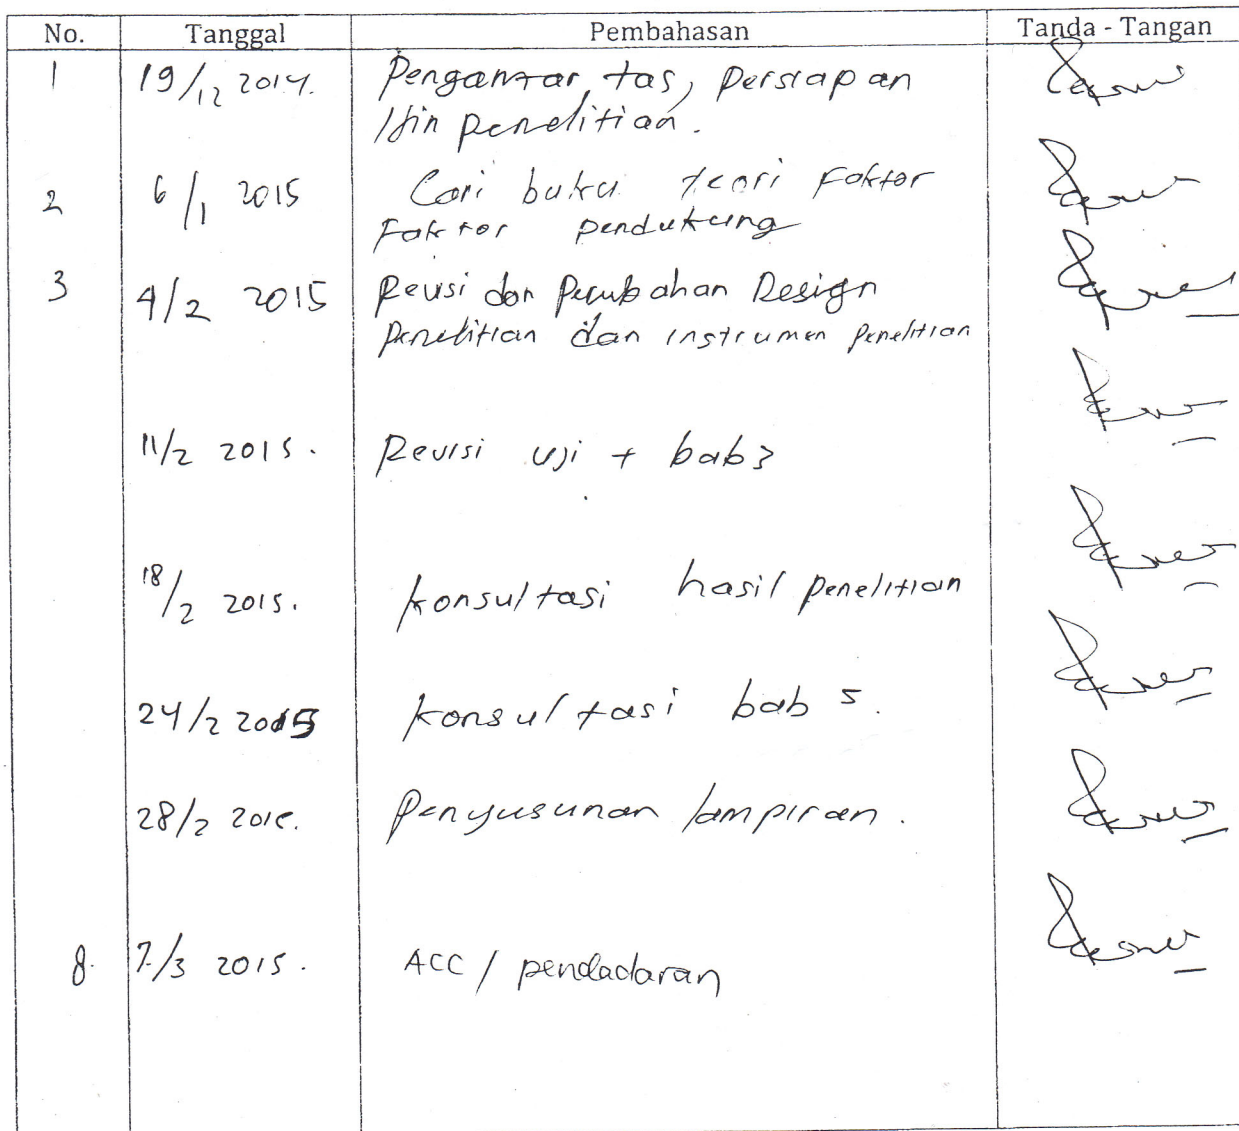 No. Tanggal Pembahasan Tanda - Tangan
1 19/12 2014. Pengantar, tas, Persiapan
Ijin penelitian.
2 6/1 2015 Cari buku teori Faktor
Faktor pendukung
3 4/2 2015 Revisi dan Perubahan Design
Penelitian dan instrumen Penelitian
11/2 2015. Revisi uji + bab 3
18/2 2015. konsultasi hasil penelitian
24/2 2015 konsultasi bab 5.
28/2 2015. Penyusunan lampiran.
8. 7/3 2015. ACC / pendadaran